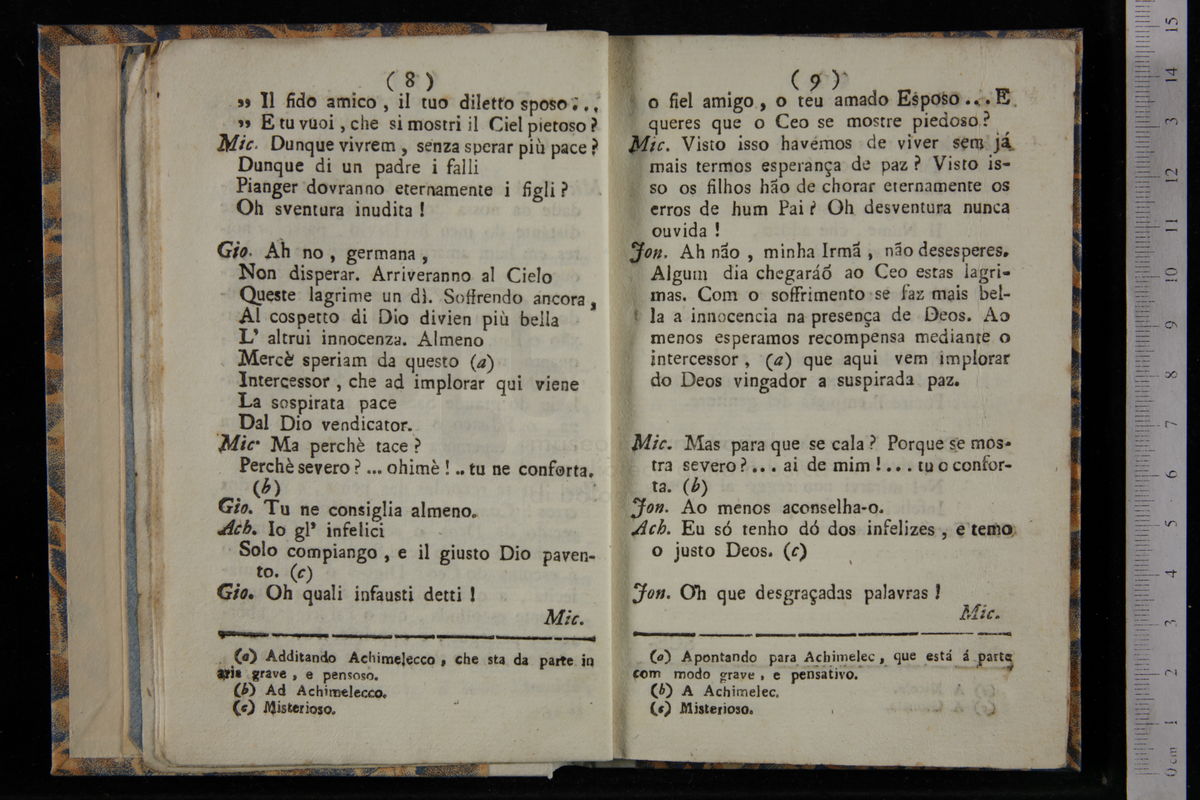 (8)
„ Il fido amico, il tuo diletto sposo...
„ E tu vuoi, che si mostri il Ciel pietoso?
Mic. Dunque vivrem, senza sperar più pace?
Dunque di un padre i falli
Pianger dovranno eternamente i figli?
Oh sventura inudita!
Gio. Ah no, germana,
Non disperar. Arriveranno al Cielo
Queste lagrime un dì. Soffrendo ancora,
Al cospetto di Dio divien più bella
L' altrui innocenza. Almeno
Mercè speriam da questo (a)
Intercessor, che ad implorar qui viene
La sospirata pace
Dal Dio vendicator.
Mic. Ma perchè tace?
Perchè severo?... ohimè!.. tu ne conforta.
(b)
Gio. Tu ne consiglia almeno.
Ach. Io gl' infelici
Solo compiango, e il giusto Dio paven-
to. (c)
Gio. Oh quali infausti detti!
Mic.
(a) Additando Achimelecco, che sta da parte in
aria grave, e pensoso.
(b) Ad Achimelecco.
(c) Misterioso.
(9)
o fiel amigo, o teu amado Esposo... E
queres que o Ceo se mostre piedoso?
Mic. Visto isso havémos de viver sem já
mais termos esperança de paz? Visto is-
so os filhos hão de chorar eternamente os
erros de hum Pai? Oh desventura nunca
ouvida!
Jon. Ah não, minha Irmã, não desesperes.
Algum dia chegaráõ ao Ceo estas lagri-
mas. Com o soffrimento se faz mais bel-
la a innocencia na presença de Deos. Ao
menos esperamos recompensa mediante o
intercessor, (a) que aqui vem implorar
do Deos vingador a suspirada paz.
Mic. Mas para que se cala? Porque se mos-
tra severo?... ai de mim!... tu o confor-
ta. (b)
Jon. Ao menos aconselha-o.
Ach. Eu só tenho dó dos infelizes, e temo
o justo Deos. (c)
Jon. Oh que desgraçadas palavras!
Mic.
(a) Apontando para Achimelec, que está á parte
com modo grave, e pensativo.
(b) A Achimelec.
(c) Misterioso.
0 cm 1 2 3 4 5 6 7 8 9 10 11 12 13 14 15